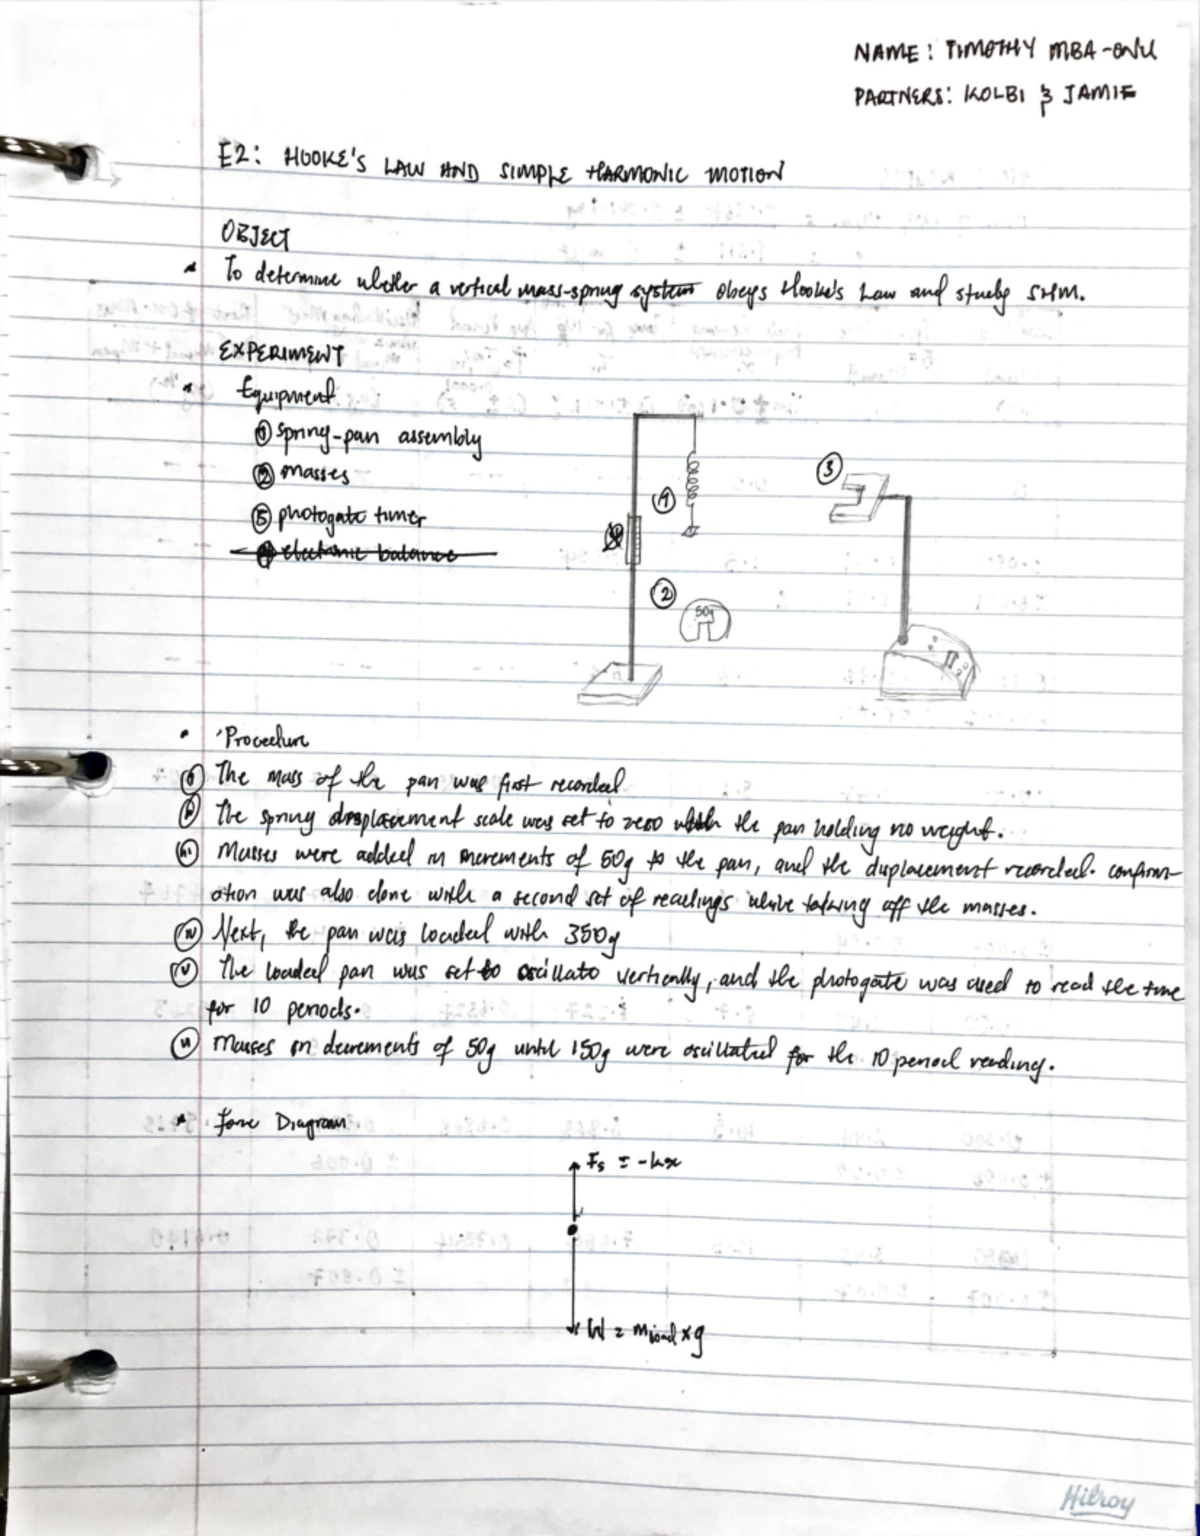 NAME: TIMOTHY MBA-ONU
PARTNERS: KOLBI & JAMIE
E2: HOOKE'S LAW AND SIMPLE HARMONIC MOTION
OBJECT
To determine whether a vertical mass-spring system obeys Hooke's Law and study SHM.
EXPERIMENT
Equipment
① spring-pan assembly
② masses
③ photogate timer
④ electronic balance
③
①
②
50g
Procedure
(i) The mass of the pan was first recorded
(ii) The spring displacement scale was set to zero with the pan holding no weight.
(iii) Masses were added in increments of 50g to the pan, and the displacement recorded. confirm-
ation was also done with a second set of readings while taking off the masses.
(iv) Next, the pan was loaded with 350g
(v) The loaded pan was set to oscillate vertically, and the photogate was used to read the time
for 10 periods.
(vi) Masses in decrements of 50g until 150g were oscillated for the 10 period reading.
Force Diagram
Fs = -kx
W = mload x g
Hilroy